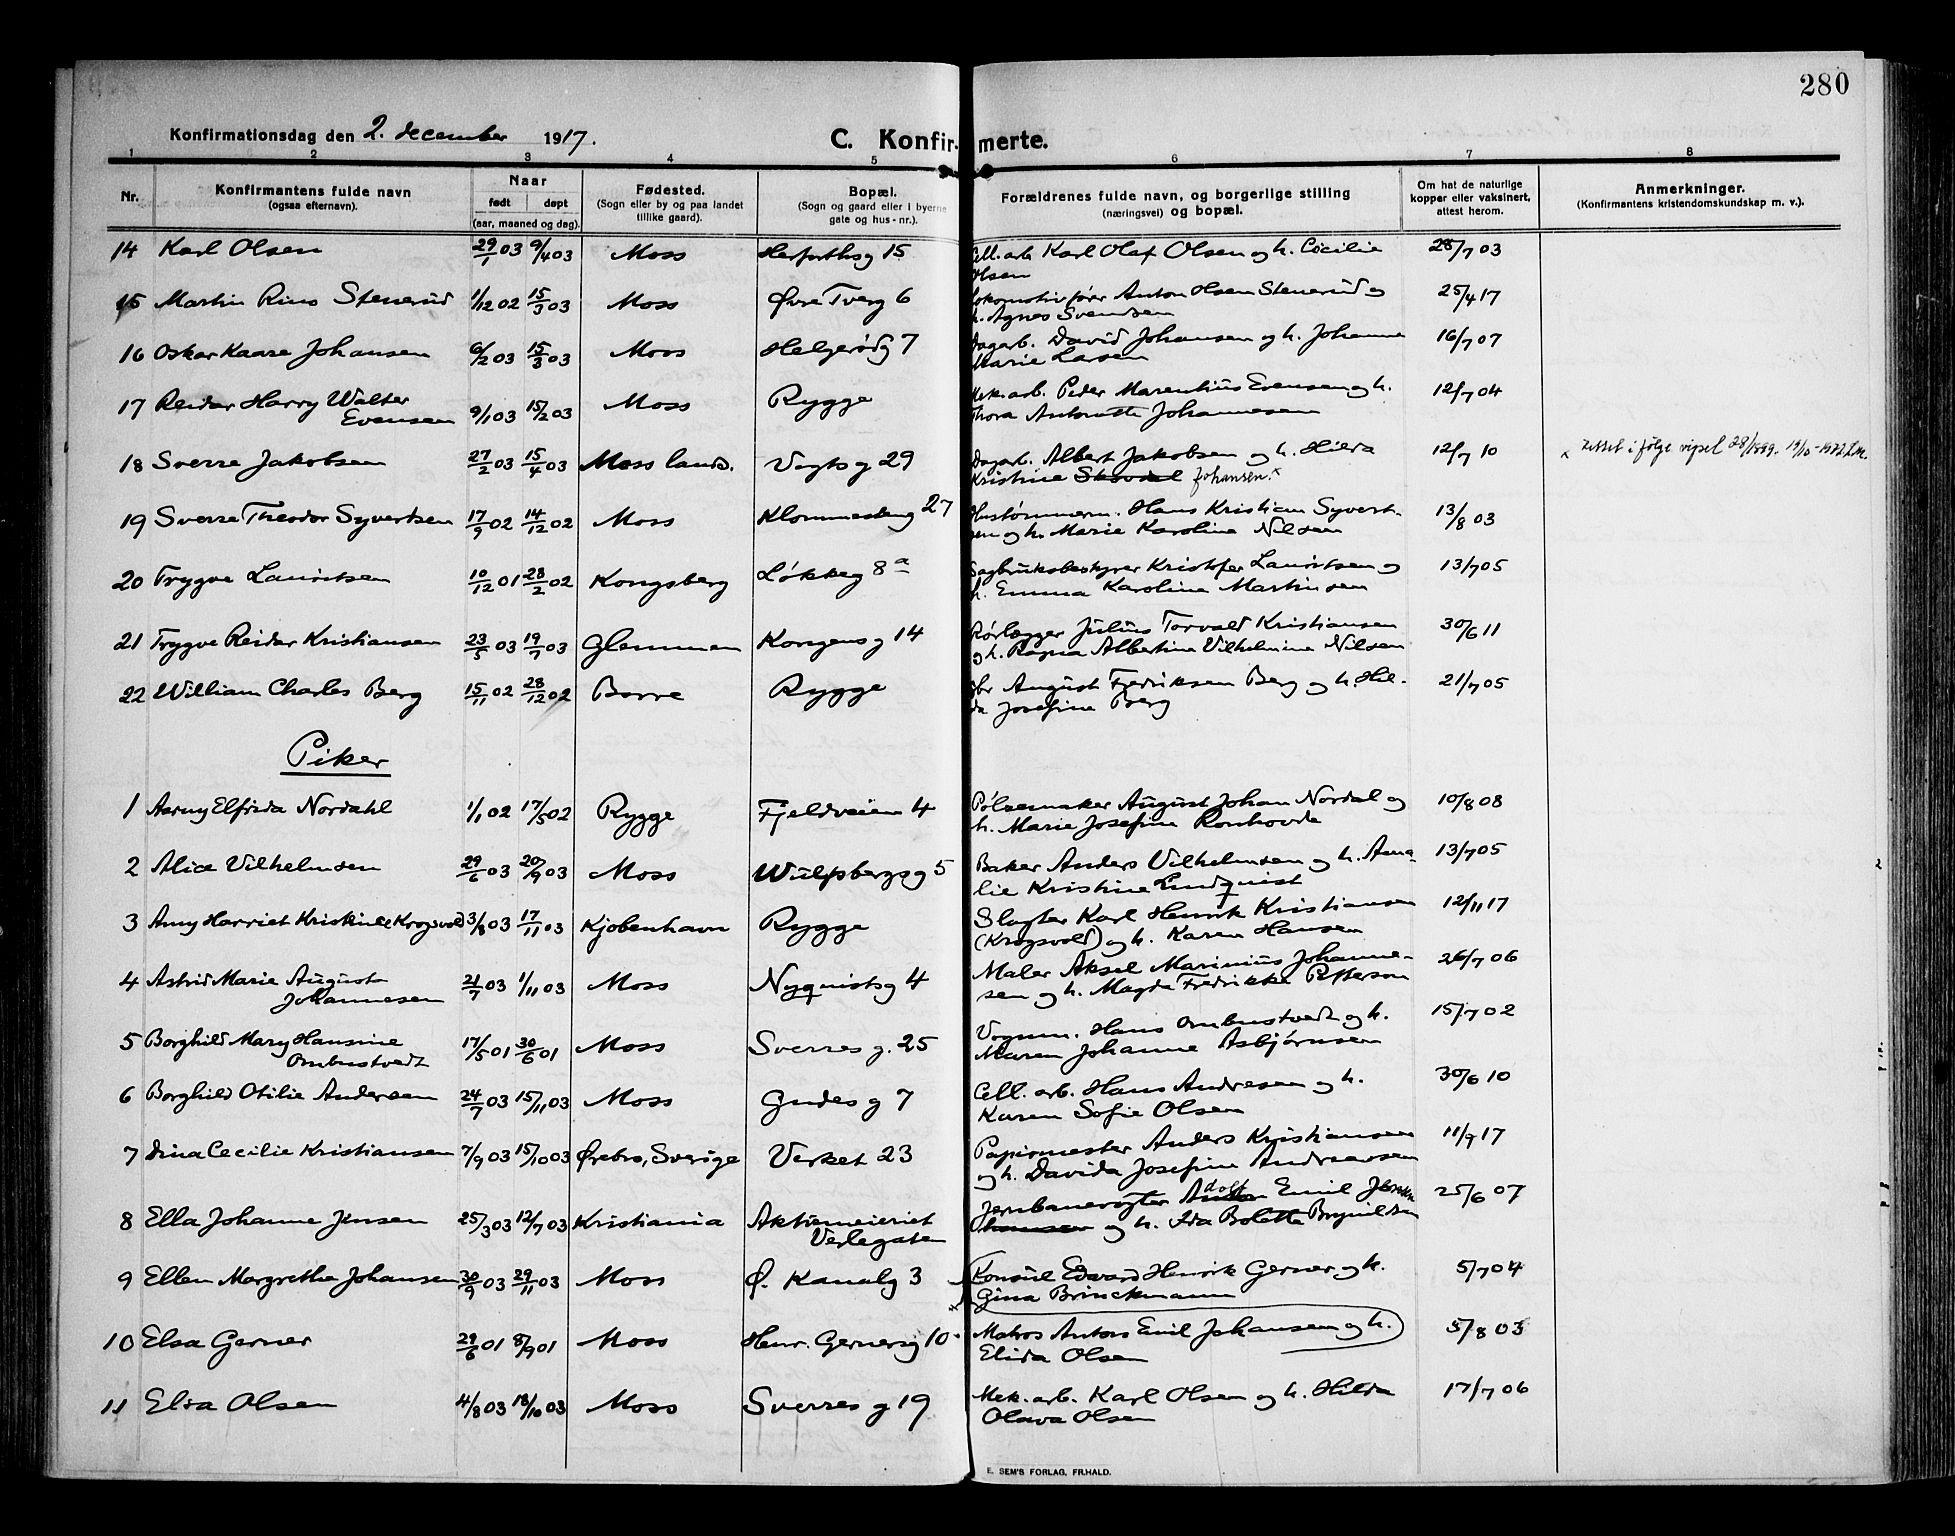 280
Konfirmationsdag den 2. december 1917.
C. Konfirmerte.
1 2 3 4 5 6 7 8
Nr. Konfirmantens fulde navn (ogsaa efternavn). Naar født døpt (aar, maaned og dag). Fødested. (Sogn eller by og paa landet tillike gaard). Bopæl. (Sogn og gaard eller i byerne gate og hus-nr.). Forældrenes fulde navn, og borgerlige stilling (næringsvei) og bopæl. Om hat de naturlige kopper eller vaksinert, attest herom. Anmerkninger. (Konfirmantens kristendomskundskap m. v.).
14 Karl Olsen 29/1 03 9/4 03 Moss Herforthsg 15 Cell. arb. Karl Olaf Olsen og h. Cecilie
Olsen 28/7 03
15 Martin Rino Stenerud 1/12 02 15/3 03 Moss Øvre Tverg 6 Lokomotivfører Anton Olsen Stenerud og
h. Agnes Svendsen 25/4 17
16 Oskar Kaare Johansen 6/2 03 15/3 03 Moss Helgerødg 7 Dagarb. David Johansen og h. Johanne
Marie Larsen 16/7 07
17 Reidar Harry Walter
Evensen 9/1 03 15/2 03 Moss Rygge Mek. arb. Peder Marentius Evensen og h.
Thora Antonette Johannesen 12/7 04
18 Sverre Jakobsen 27/2 03 15/4 03 Moss lands. Vogts g 29 Dagarb. Albert Jakobsen og h. Hilda
Kristine Skovdal Johansen.x 12/7 10 x rettet i følge vigsel 28/1899. 19/10-1972
19 Sverre Theodor Syvertsen 17/9 02 14/12 02 Moss Klommesteng 27 Hustømmerm. Hans Kristian Syvert-
sen og h. Marie Karoline Nilsen 13/8 03
20 Trygve Lauritsen 10/12 01 28/2 02 Kongsberg Løkkeg 8a Sagbruksbestyrer Kristofer Lauritsen og
h. Emma Karoline Martinsen 13/7 05
21 Trygve Reidar Kristiansen 23/5 03 19/7 03 Glemmen Kongens g 14 Rørlægger Julius Torvald Kristiansen
og h. Ragna Albertine Vilhelmine Nilsen 30/6 11
22 William Charles Berg 15/11 02 28/12 02 Borre Rygge August Fredriksen Berg og h. Hil-
da Josefine Berg 21/7 05
Piker
1 Aasny Elfrida Nordahl 1/1 02 17/5 02 Rygge Fjeldveien 4 Pølsemaker August Johan Nordal og
h. Marie Josefine Ronhovde 10/8 08
2 Alice Vilhelmsen 29/6 03 20/9 03 Moss Wulfsbergs g 5 Baker Anders Vilhelmsen og h. Ama-
lie Kristine Lindquist 13/7 05
3 Amy Harriet Kristine Krogsvold 3/8 03 17/11 03 Kjøbenhavn Rygge Slagter Karl Henrik Kristiansen
(Krogsvold) og h. Karen Hansen 12/11 17
4 Astrid Marie August
Johannesen 21/7 03 1/11 03 Moss Nyquists g 4 Maler Aksel Marinius Johanne-
sen og h. Magda Fredrikke Petterson 26/7 06
5 Borghild Mary Hansine
Ombustvedt 17/5 01 30/6 01 Moss Sverres g. 25 Vognm. Hans Ombustvedt og h.
Maren Johanne Asbjørnsen 15/7 02
6 Borghild Otilie Andersen 24/7 03 15/11 03 Moss Gudes g 7 Cell. arb. Hans Andresen og h.
Karen Sofie Olsen 30/6 10
7 Dina Cecilie Kristiansen 7/9 03 15/10 03 Ørebro, Sverige Verket 23 Papirmester Anders Kristiansen
og h. Davida Josefine Andreassen 11/9 17
8 Ella Johanne Jensen 25/3 03 12/7 03 Kristiania Aktiemeieriet
Verlegaten Jernbanevogter Adolf Emil Jensen
og h. Ida Bolette Brynildsen 25/6 07
9 Ellen Margrethe Johansen 30/9 03 29/11 03 Moss Ø. Kanalg 3 Konsul Edvard Henrik Gerner og h.
Gina Brinckmann 5/7 04
10 Elsa Gerner 29/6 01 8/9 01 Moss Henr. Gernersg 10 Matros Antons Emil Johansen og h.
Elida Olsen 5/8 03
11 Elsa Olsen 4/8 03 18/10 03 Moss Sverres g 19 Mek. arb. Karl Olsen og h. Hilda
Olava Olsen 17/7 06
E. SEM'S FORLAG, FR.HALD.